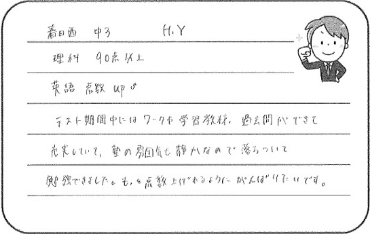 春日西 中3 H.Y
理科 90点以上
英語 点数 up♂
テスト期間中にはワークや学習教材、過去問ができて
充実していて、塾の雰囲気も静かなので落ちついて
勉強できました。もっと点数上げれるようにがんばりたいです。